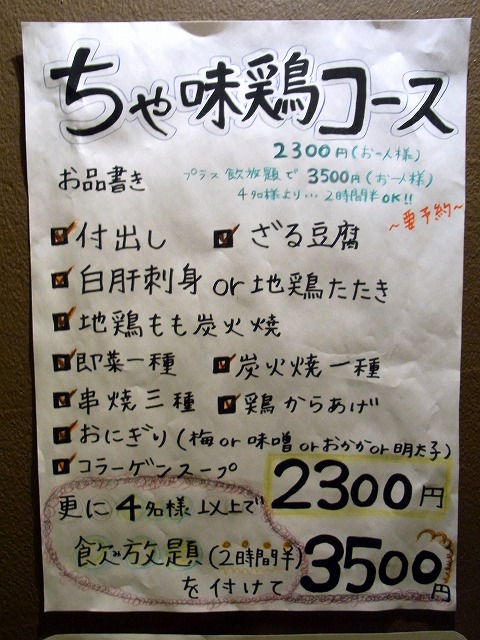 ちゃ味鶏コース
2300円(お一人様)
お品書き
プラス飲放題で3500円(お一人様)
4名様より…2時間半OK!!
～要予約～
付出し ざる豆腐
白肝刺身or地鶏たたき
地鶏もも炭火焼
即菜一種 炭火焼一種
串焼三種 鶏からあげ
おにぎり(梅or味噌orおかかor明太子)
コラーゲンスープ
2300円
更に4名様以上で
飲み放題(2時間半)
を付けて 3500円